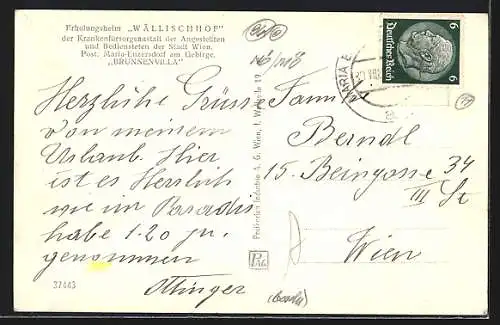 Erholungsheim „WÄLLISCHHOF"
der Krankenfürsorgeanstalt der Angestellten
und Bediensteten der Stadt Wien.
Post. Maria-Enzersdorf am Gebirge.
„BRUNNENVILLA"
Herzliche Grüsse
von meinem
Urlaub. Hier
ist es Herrlich
wie im Paradis
habe 1·20
genommen
Ottinger
37443
Postkarten-Industrie A. G. Wien, I. 19
PIAG
6 6
Deutsches Reich
MARIA E
Fam.
Berndl
15. Beingasse 34
III St
Wien